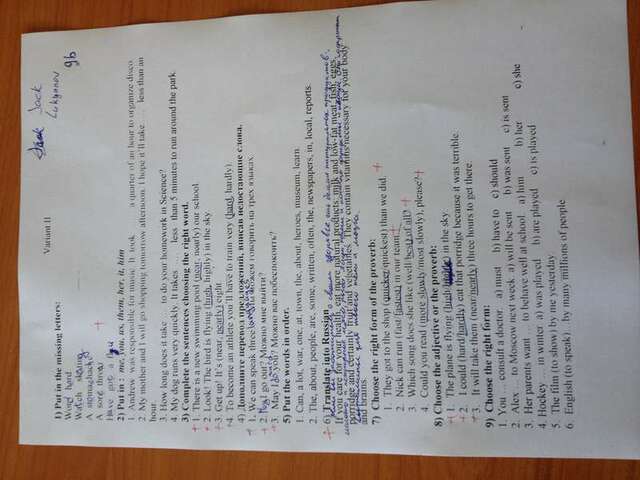 Jack Jack
Lukyanov 9b
Variant II
1) Put in the missing letters:
Word hard
Watch
A stomachache
A sore throat
Have got flu
2) Put in : me, you, us, them, her, it, him
1. Andrew was responsible for music. It took … a quarter of an hour to organize disco.
2. My mother and I will go shopping tomorrow afternoon. I hope it'll take … less than an
hour.
3. How long does it take … to do your homework in Science?
4. My dog runs very quickly. It takes … less than 5 minutes to run around the park.
3) Complete the sentences choosing the right word.
1. There is a new swimming pool (near, nearly) our school.
2. Look! The bird is flying (high, highly) in the sky.
3. Get up! It's (near, nearly) eight.
4. To become an athlete you'll have to train very (hard, hardly).
4) Дополните перевод предложений, вписав недостающие слова.
1. We can speak three languages. Мы можем говорить на трех языках.
2. May I go out? Можно мне выйти?
3. May I do you? Можно вас побеспокоить?
5) Put the words in order.
1. Can, a lot, war, one, at, town, the, about, heroes, museum, learn.
2. The, about, people, are, some, written, often, the, newspapers, in, local, reports.
6) Translate into Russian.
If you care for your health, eat more natural products, milk and low-fat meat, fish, eggs,
porridge and certainly fruits and vegetables. They contain vitamins necessary for your body
and brains.
7) Choose the right form of the proverb:
1. They got to the shop (quicker/quickest) than we did.
2. Nick can run (fast/fastest) in our team.
3. Which song does she like (well/best) of all?
4. Could you read (more slowly/most slowly), please?
8) Choose the adjective or the proverb:
1. The plane is flying (high/highly) in the sky.
2. I could (hard/hardly) eat that porridge because it was terrible.
3. It will take them (near/nearly) three hours to get there.
9) Choose the right form:
1. You … consult a doctor. a) must b) have to c) should
2. Alex … to Moscow next week. a) will be sent b) was sent c) is sent
3. Her parents want … to behave well at school. a) him b) her c) she
4. Hockey … in winter a) was played b) are played c) is played
5. The film (to show) by me yesterday.
6. English (to speak) . by many millions of people.